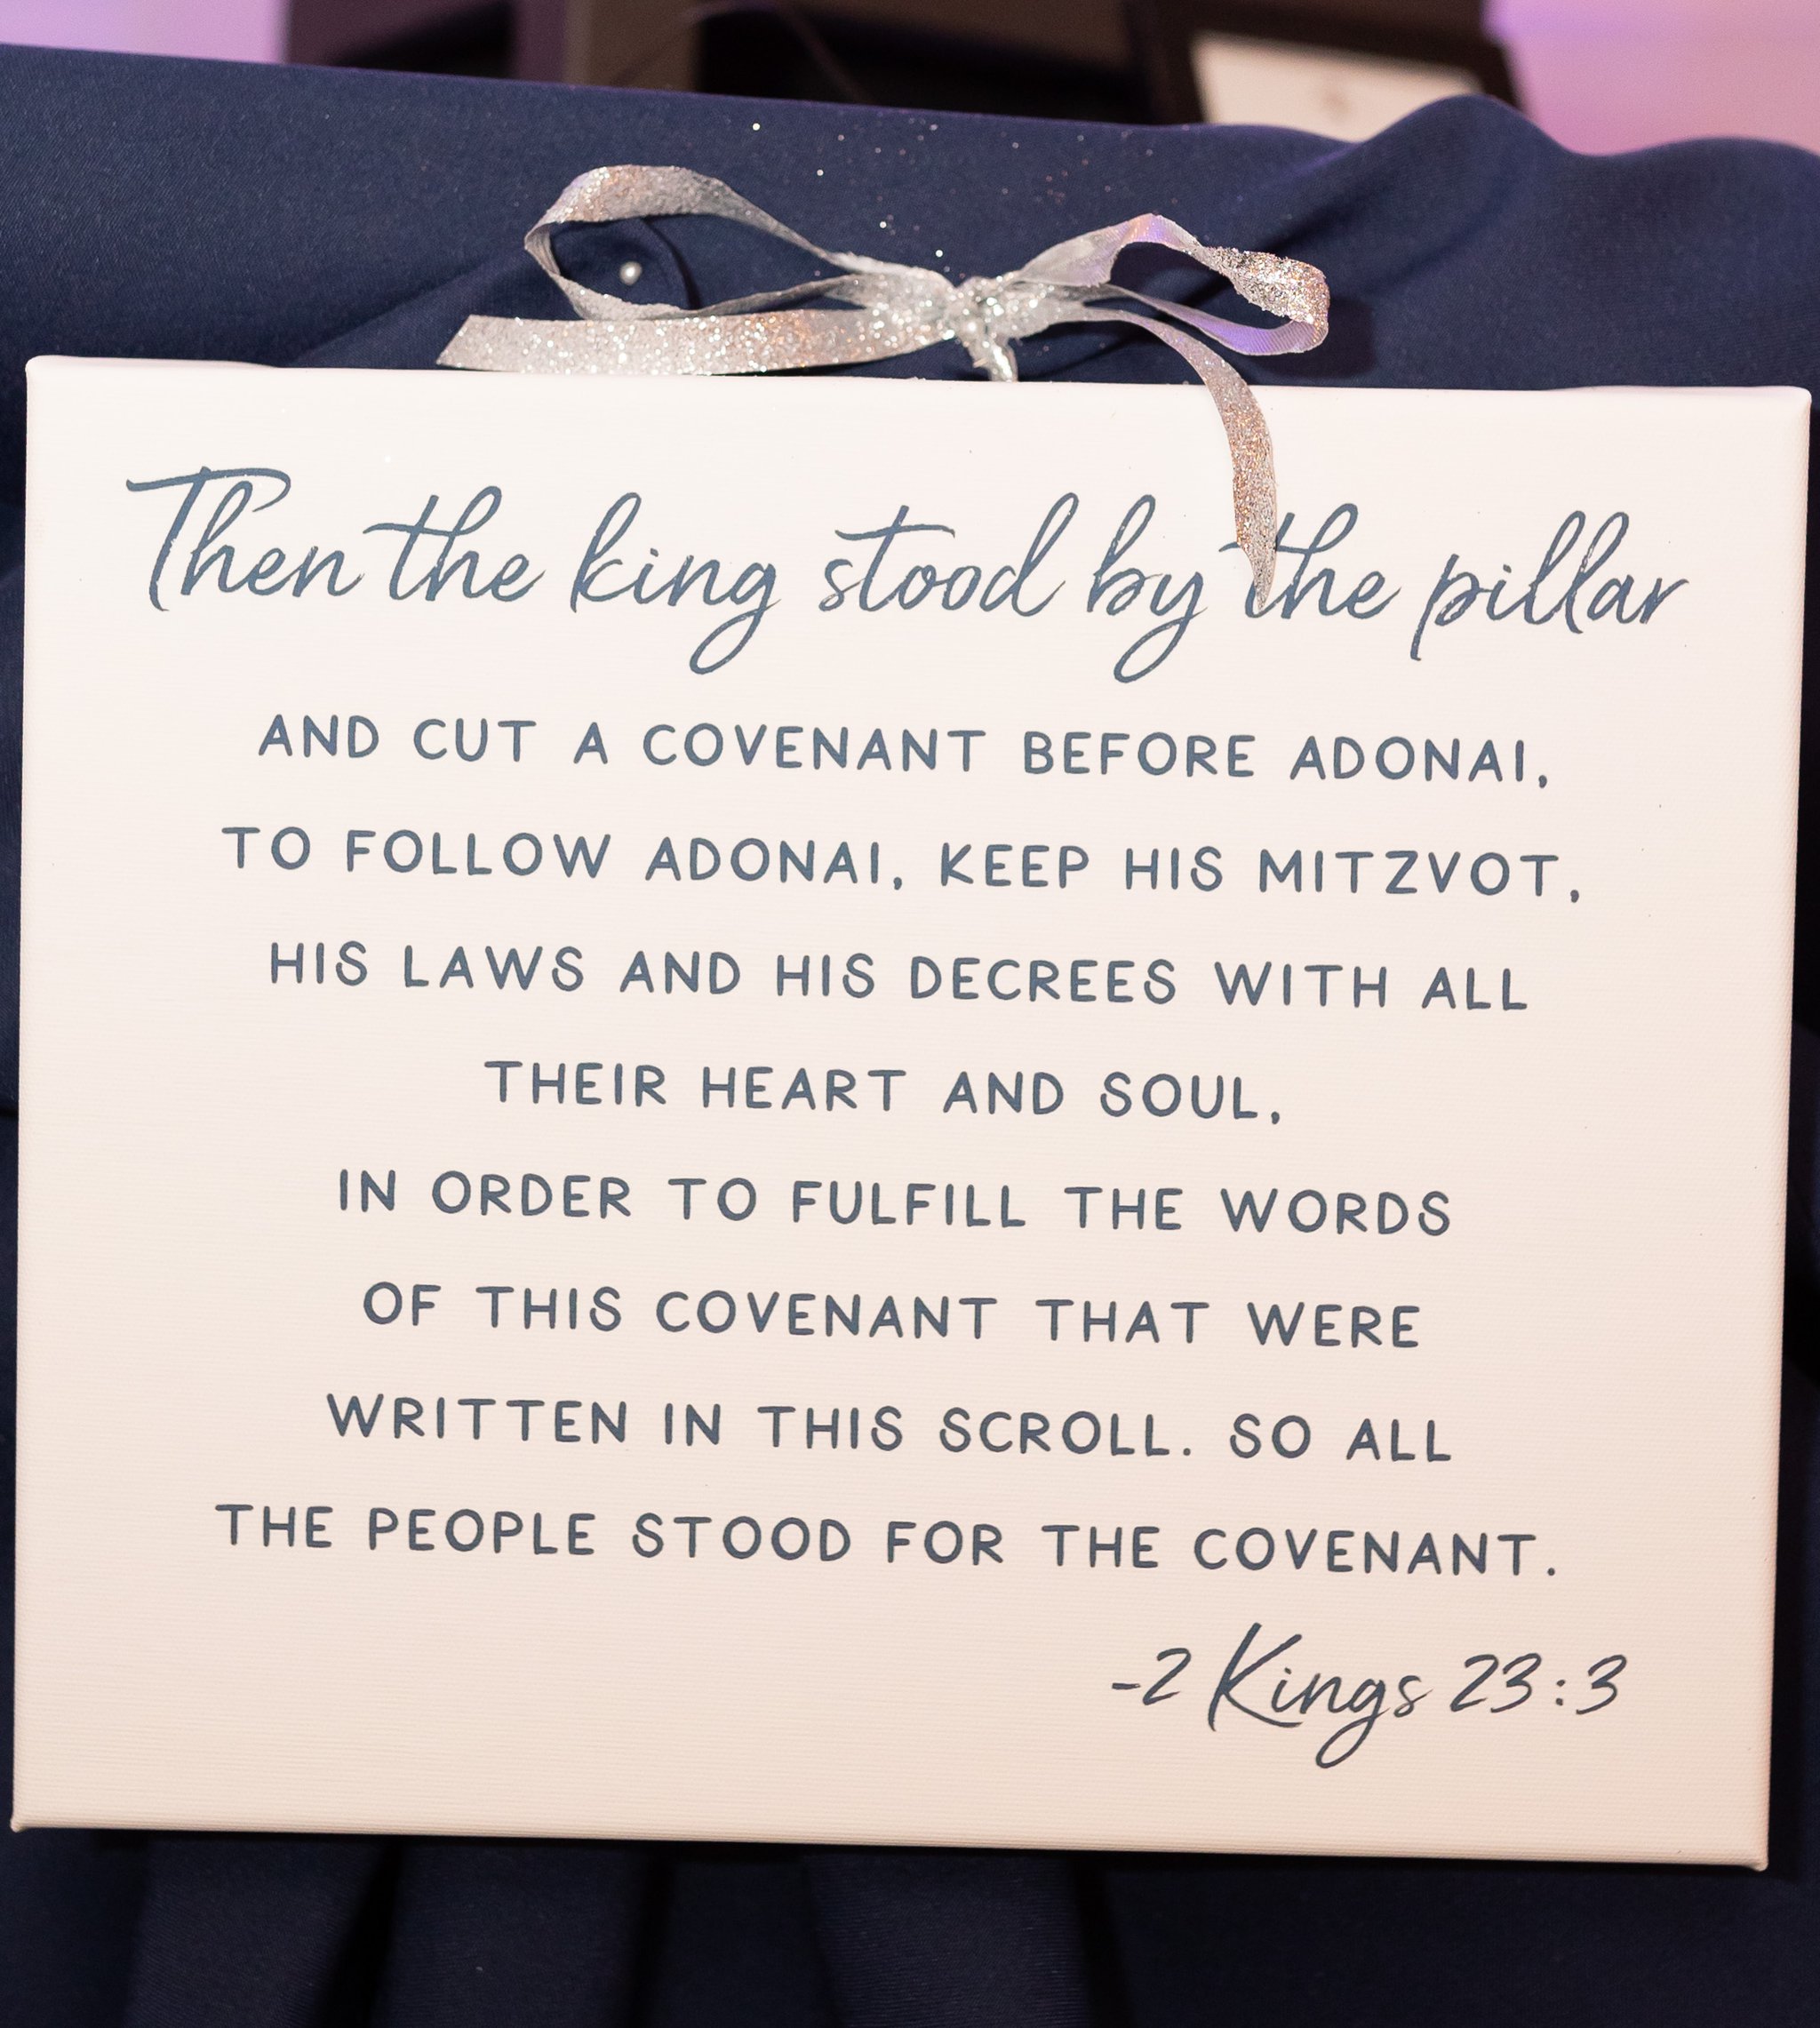 Then the king stood by the pillar
AND CUT A COVENANT BEFORE ADONAI,
TO FOLLOW ADONAI, KEEP HIS MITZVOT,
HIS LAWS AND HIS DECREES WITH ALL
THEIR HEART AND SOUL,
IN ORDER TO FULFILL THE WORDS
OF THIS COVENANT THAT WERE
WRITTEN IN THIS SCROLL. SO ALL
THE PEOPLE STOOD FOR THE COVENANT.
-2 Kings 23:3